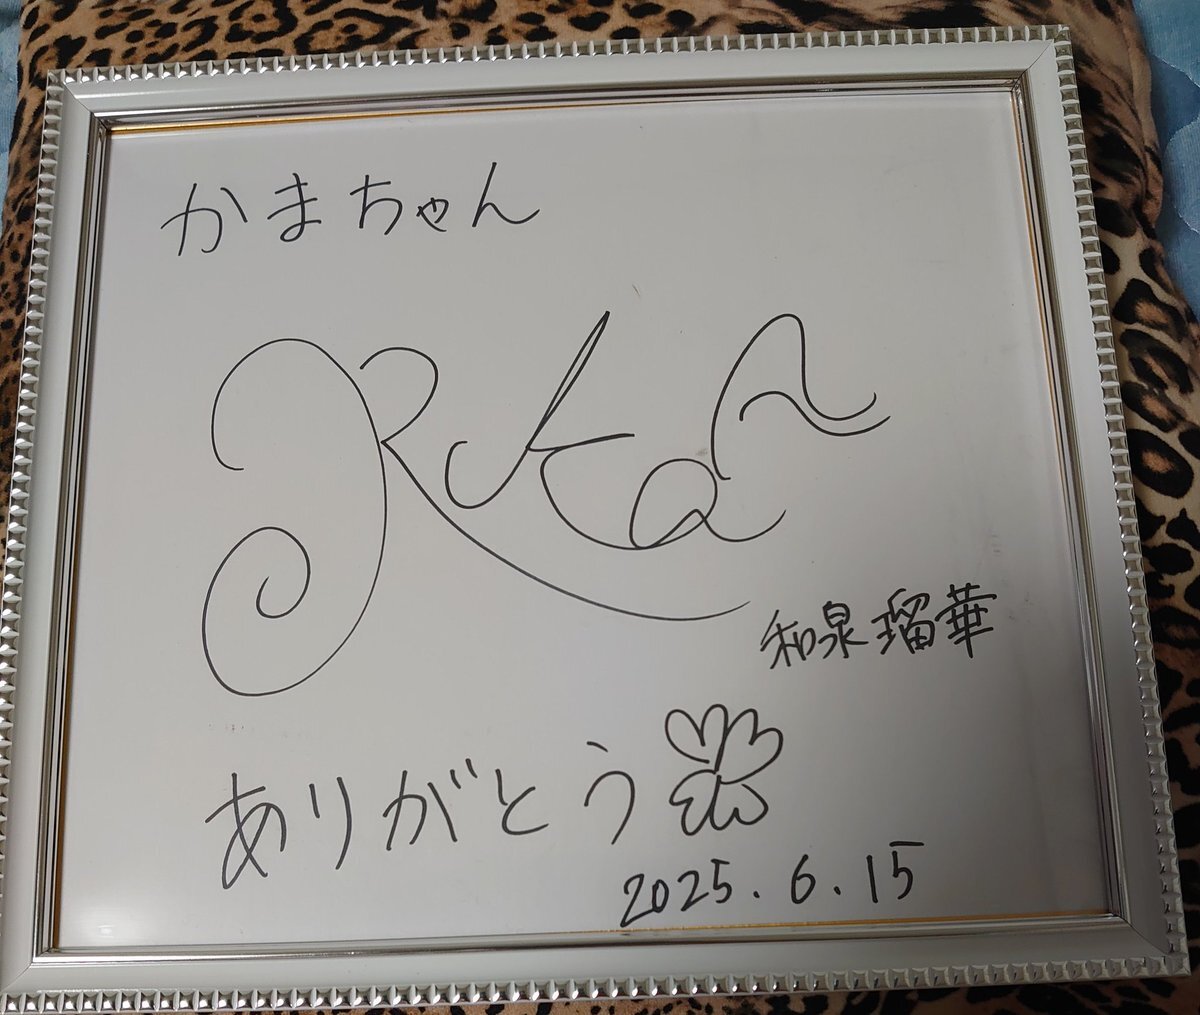 かまちゃん
Ruka
和泉瑠華
ありがとう
2025.6.15